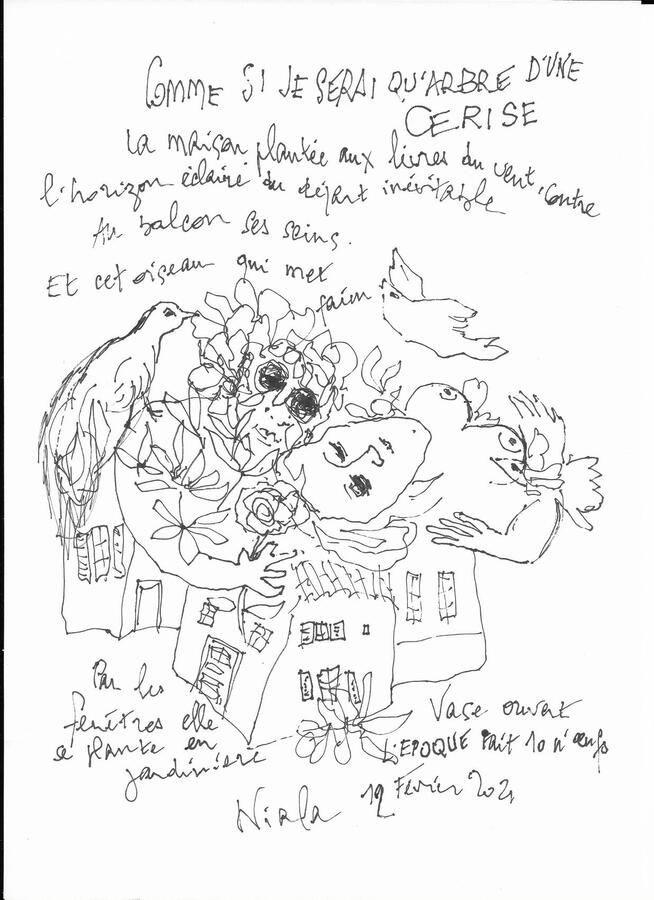 COMME SI JE SERAI QU'ARBRE D'UNE
CERISE
La maison plantée aux livres du vent, contre
l'horizon éclairé du départ inévitable
Au balcon ses seins.
Et cet oiseau qui met
faim
Par les
fenêtres elle
se plante en
jardinière
Vase ouvert
L'EPOQUE fait 10 n'oeufs
Niala
12 Février 2021